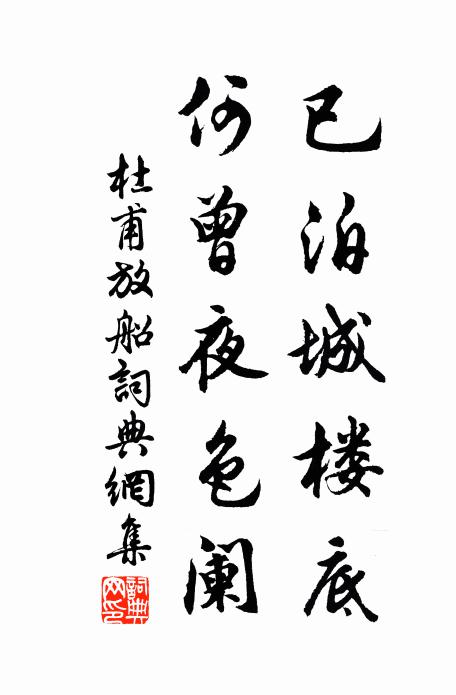 已泊城楼底
何曾夜色阑
杜甫放船詞典網集
詞典
网印